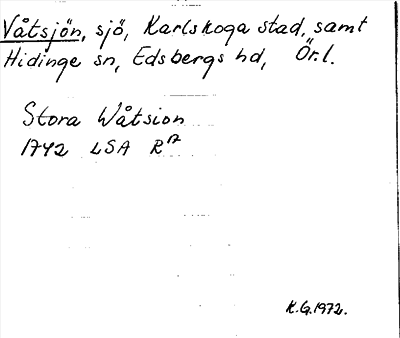 Våtsjön, sjö, Karlskoga stad, samt
Hidinge sn, Edsbergs hd, Ör.l.
Stora Wåtsion
1742 LSA R17
K.G. 1972.